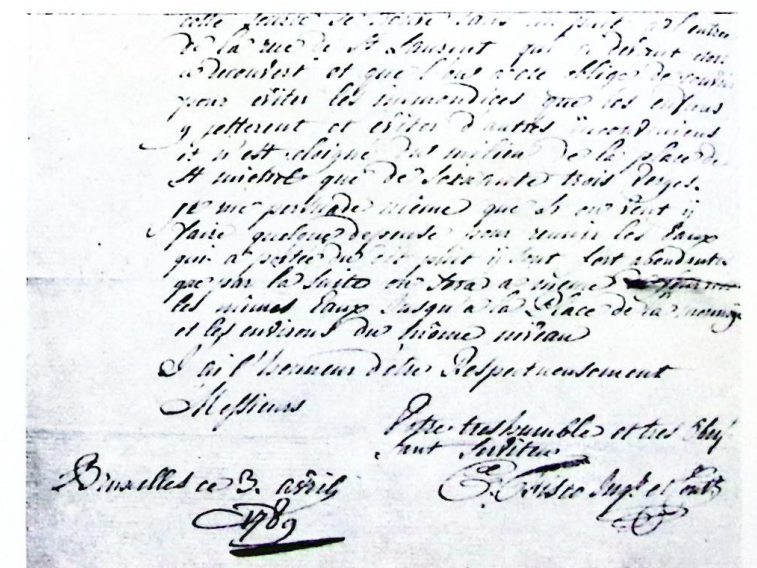 cette source se trouve dans un puit a l'entrée
de la rue de St Laurent qui a devant etoit
a decouvert et que l'on a été obligé de couvrir
pour eviter les immondices que les enfans
y jetterent et eviter d'autres inconveniens
il n'est eloigné du milieu de la place de
St michel que de soixante trois verges.
je me persuade même que si on veut y
faire quelque depense pour reunir les Eaux
qui a portée du dit puit y sont fort abondantes
que par la suite on sera a même
les mêmes Eaux jusqu'a la Place de la monnoye
et les environs du même niveau
J'ai l'honneur d'etre Respectueusement
Messieurs
Votre tres humble et tres obeis
sant serviteur
Bruxelles ce 3. avril
1789
C. Fisco Ingr et Contr